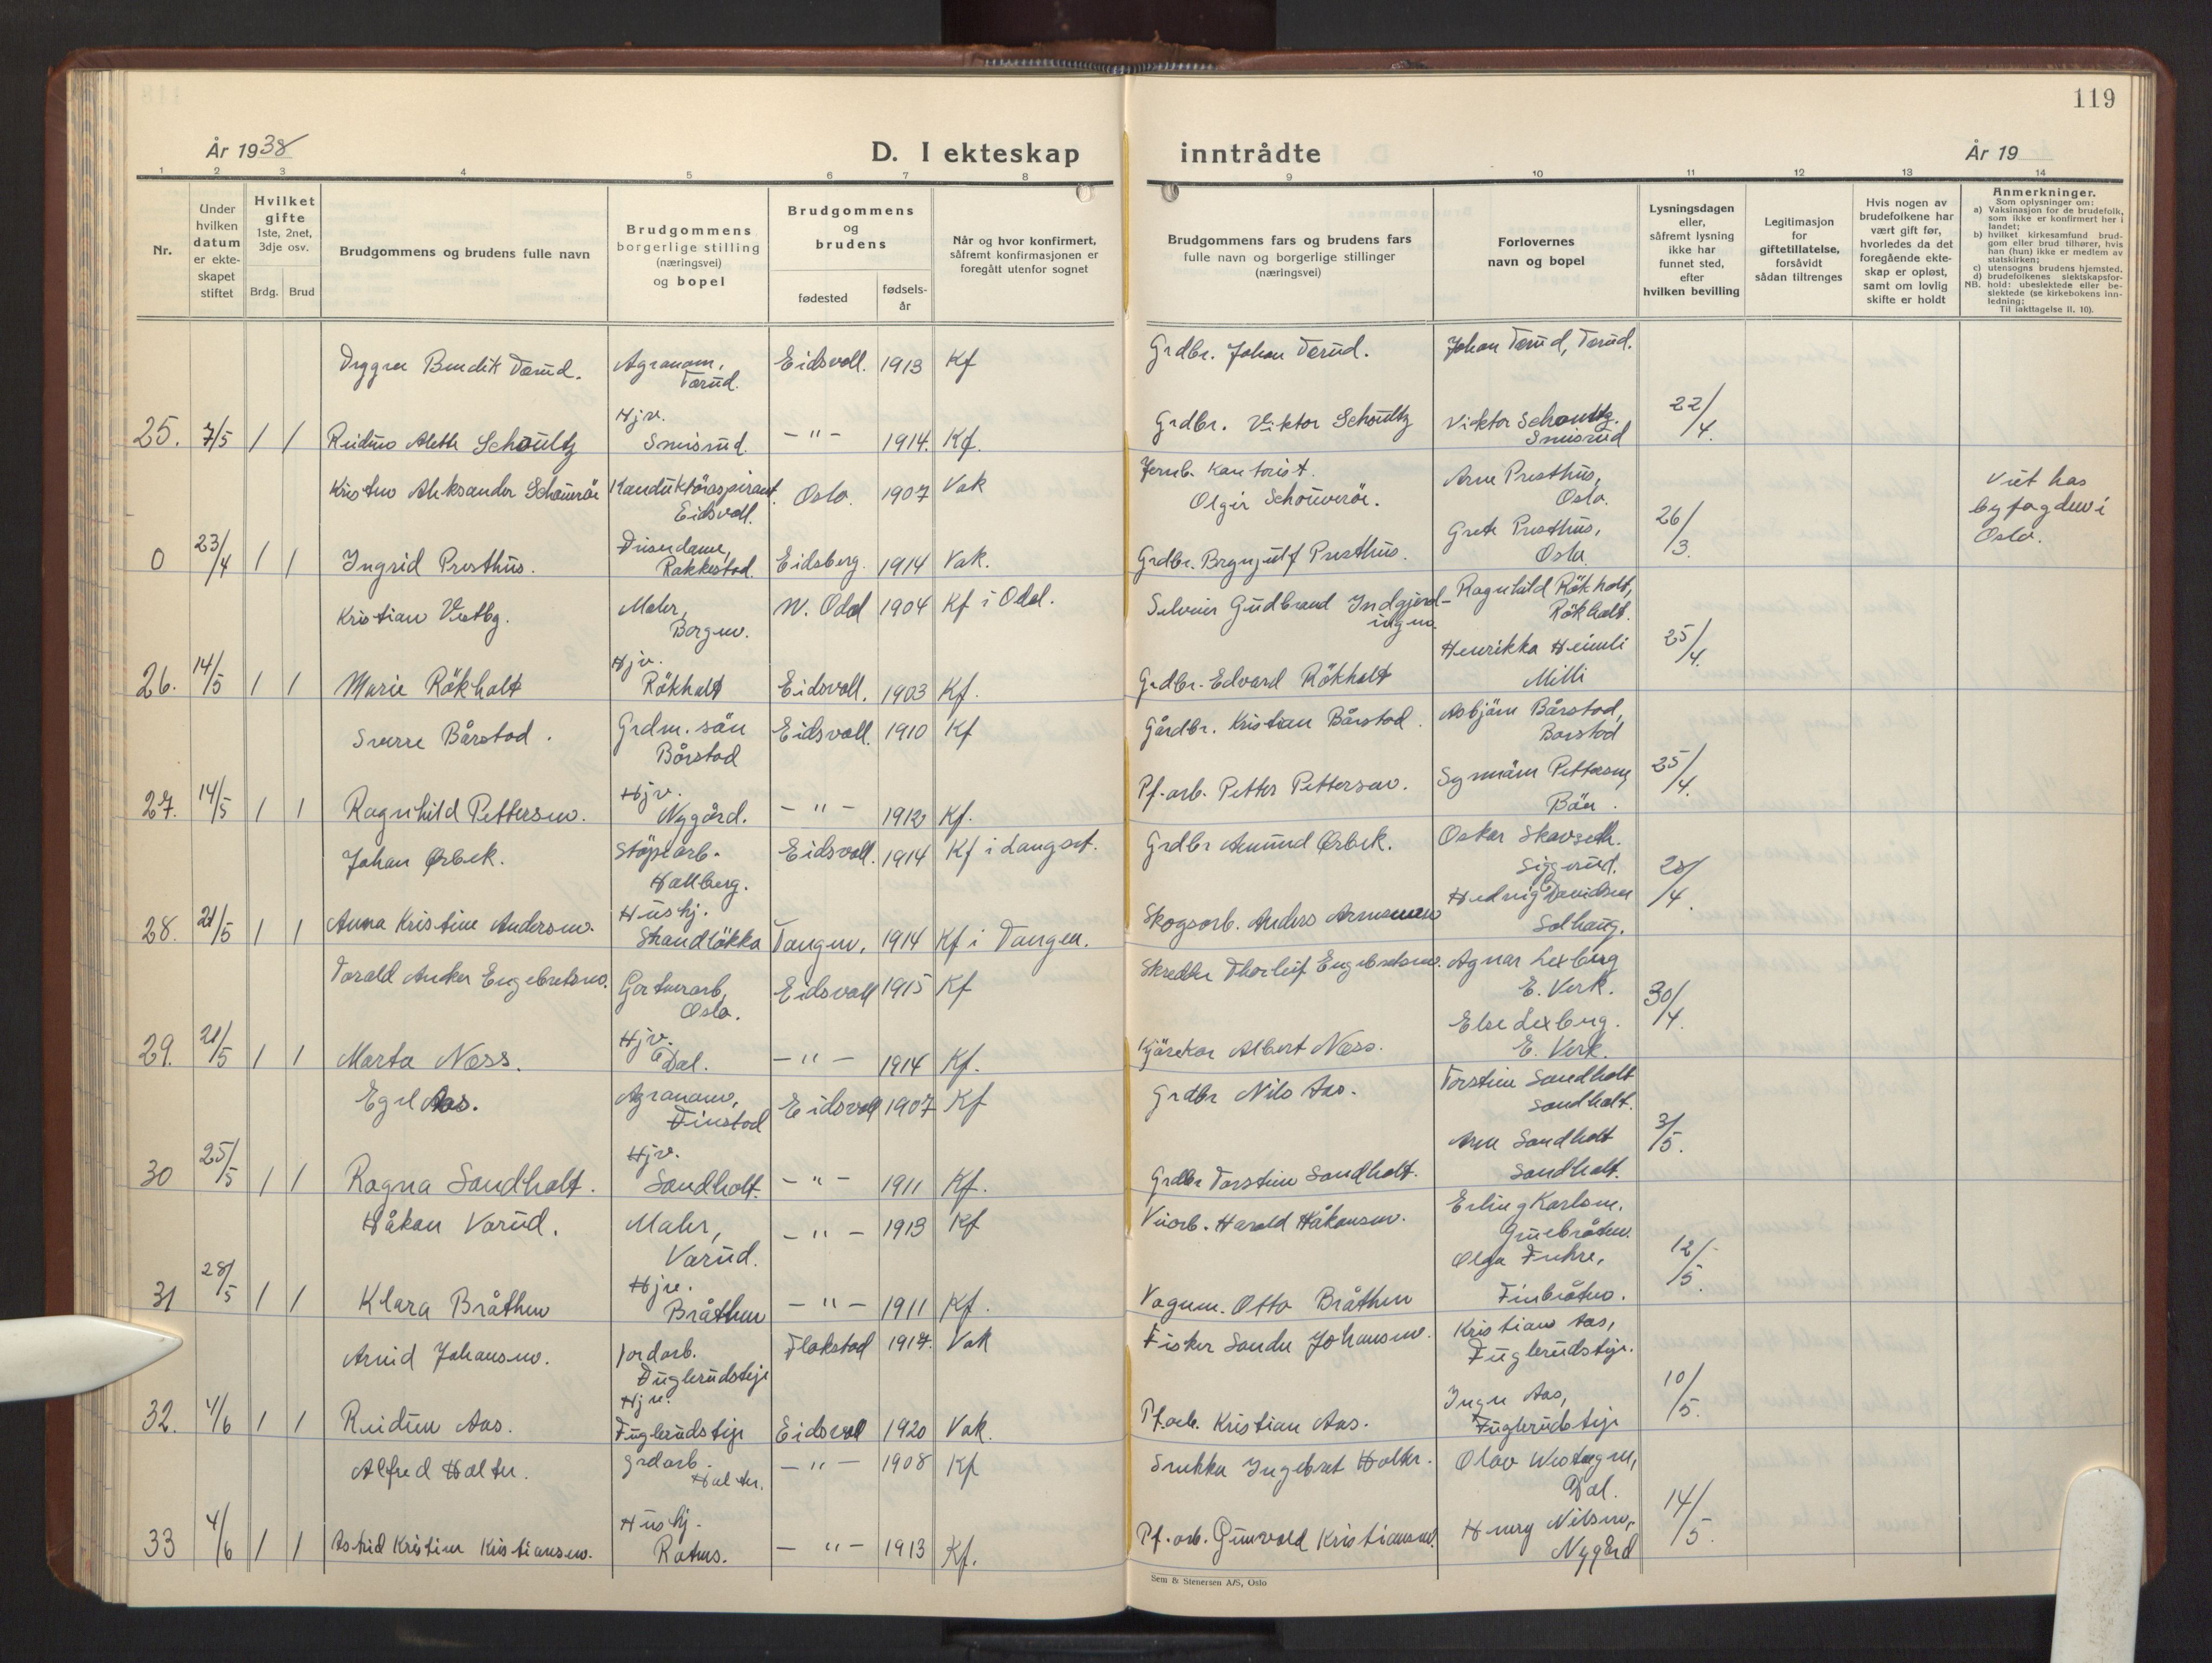 119
År 1938
D. I ekteskap inntrådte
År 19
1 2 3 4 5 6 7 8 9 10 11 12 13 14
Nr.
Under
hvilken
datum
er ekte-
skapet
stiftet
Hvilket
gifte
1ste, 2net,
3dje osv.
Brdg. Brud
Brudgommens og brudens fulle navn
Brudgommens
borgerlige stilling
(næringsvei)
og bopel
Brudgommens
og
brudens
fødested
fødsels-
år
Når og hvor konfirmert,
såfremt konfirmasjonen er
foregått utenfor sognet
Brudgommens fars og brudens fars
fulle navn og borgerlige stillinger
(næringsvei)
Forlovernes
navn og bopel
Lysningsdagen
eller,
såfremt lysning
ikke har
funnet sted,
efter
hvilken bevilling
Legitimasjon
for
giftetillatelse,
forsåvidt
sådan tiltrenges
Hvis nogen av
brudefolkene har
vært gift før,
hvorledes da det
foregående ekte-
skap er opløst,
samt om lovlig
skifte er holdt
Anmerkninger.
Som oplysninger om:
a) Vaksinasjon for de brudefolk,
som ikke er konfirmert her i
landet;
b) hvilket kirkesamfund brud-
gom eller brud tilhører, hvis
han (hun) ikke er medlem av
statskirken;
c) utensogns brudens hjemsted.
d) brudefolkenes slektskapsfor-
NB. hold: ubeslektede eller be-
slektede (se kirkebokens inn-
ledning;
Til iakttagelse II, 10).
Bendik Tærud. Agronom, Eidsvoll. 1913 Kf Grdbr. Johan Tærud. Johan Tærud, Tærud.
Tærud.
25. 7/5 1 1 Reidun Aleth Schoultz Hjv. - " - 1914. Kf. Grdbr. Viktor Schoultz Viktor Schoultz. 22/4.
Smisrud. Smisrud
Kristen Aleksander Konduktöraspirant Oslo. 1907 Vak Jernb. kontorist. Arne Presthus, Viet hos
Eidsvoll. Olger Oslo. byfogden i
0 23/4 1 1 Ingrid Presthus. Eidsberg. 1914 Vak. Grdbr. Brynjulf Presthus. Grete Presthus, 26/3. Oslo.
Rakkestad. Oslo.
Kristian Vestbg. Maler, N. Odal 1904 Kf i Odal. Gudbrand Ragnhild Rökholt,
Borgen. Rökholt.
26. 14/5 1 1 Marie Rökholt Hjv. Eidsvoll. 1903 Kf. Grdbr. Edvard Rökholt Henrikka Heimli 25/4.
Rökholt Milli
Sverre Bårstad. Grdm. sön Eidsvoll. 1910 Kf Gårdbr. Kristian Bårstad. Asbjörn Bårstad,
Bårstad Bårstad
27. 14/5 1 1 Ragnhild Pettersen. Hjv. - " - 1912 Kf. Pf. arb. Petter Pettersen. 25/4.
Nygård. Bön.
Johan Ørbek. Støpearb. Eidsvoll. 1914 Kf i Langset. Grdbr Amund Ørbek. Oskar Skavseth.
Hallberg. Siggerud.
28. 21/5 1 1 Anna Kristine Andersen. Hushj. Tangen, 1914 Kf i Tangen. Skogsarb. Anders Arnesen Hedvig Davidsen 28/4.
Strandlökka Solhaug.
Torald Anker Engebretsen. Gartnerarb, Eidsvoll 1915 Kf Skredder Thorleif Engebretsen. Agnar Lexberg
Oslo. E. Verk.
29. 21/5 1 1 Marta Næss. Hjv. - " - 1914 Kf. Kjörekar Albert Næss. Else Lexberg. 30/4.
Dal. E. Verk.
Egil Aas. Agronom, Eidsvoll 1907 Kf Grdbr Nils Aas. Torstein Sandholt
Finstad Sandholt.
30 25/5 1 1 Ragna Sandholt. Hjv. - " - 1911 Kf. Grdbr Torstein Sandholt. Arne Sandholt 3/5.
Sandholt. Sandholt.
Håkon Varud. Maler, - " - 1913 Kf Harald Håkonsen. Erling Karlsen.
Varud. Gruebråten.
31 28/5 1 1 Klara Bråthen Hjv. - " - 1911 Kf. Vognm. Otto Bråthen Olga Fuhre, 12/5.
Bråthen Finbråten.
Arvid Johansen. Jordarb. Flakstad 1917. Vak Fisker Sander Johansen. Kristian Aas,
Fuglerudsteje Fuglerudsteje.
32. 4/6 1 1 Reidun Aas. Hjv. Eidsvoll 1920 Vak. Pf.arb. Kristian Aas. Inga Aas, 10/5.
Fuglerudsteje Fuglerudsteje
Alfred Holter. Grdarb. - " - 1908 Kf Snekker Ingebret Holter. Olav Westengen,
Holter. Dal.
33 4/6 1 1 Astrid Kristine Kristiansen. Hushj. - " - 1913 Kf. Pf. arb. Gunvald Kristiansen. Henry Nilsen, 14/5.
Ratnes. Nygård
Sem & Stenersen A/S, Oslo